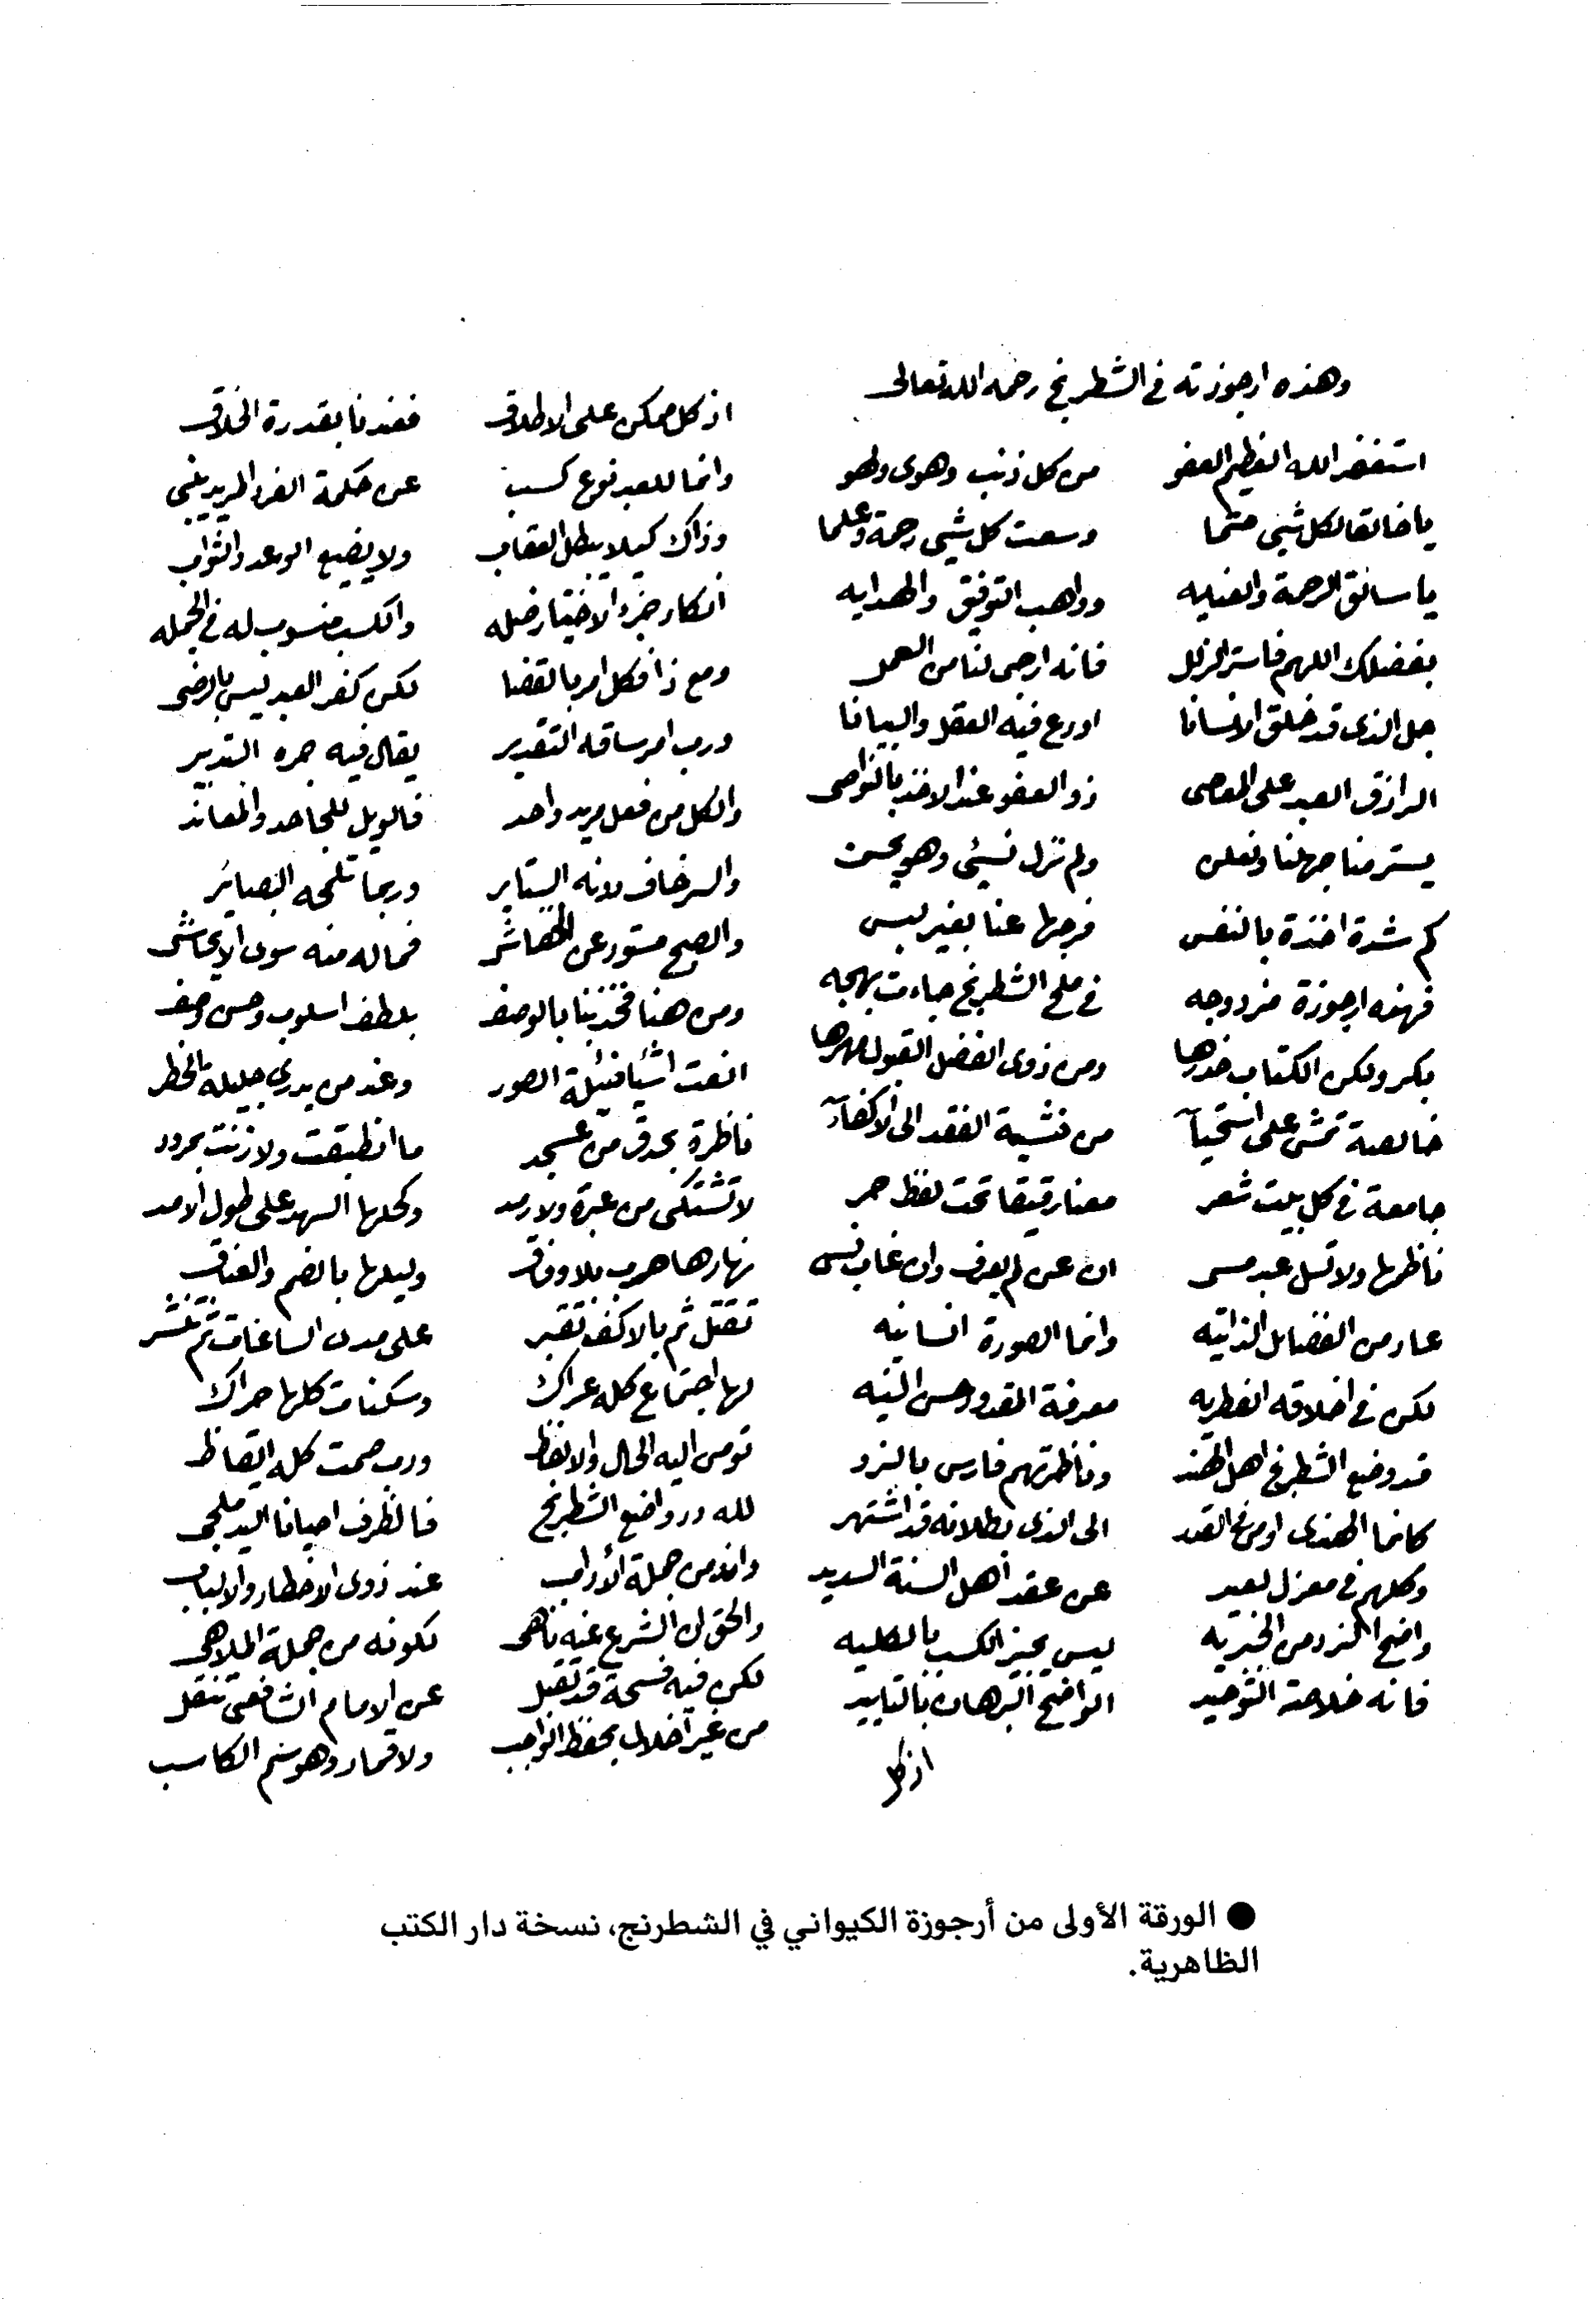 وهذه ارجوزته في الشطرنج رحمه الله تعالى
استغفر الله العظيم العفو من كل ذنب وهوى ولهو
يا خالقا لكل شيء وسعت كل شيء رحمة وعلما
يا سائق الرحمة والعنايه وواهب التوفيق والهدايه
بفضلك اللهم فاستر الزلل فانه ارجى لنا من العمل
جل الذي قد خلق الانسانا اودع فيه العقل والبيانا
الرازق العبد على المعاصى ذو العفو عند الاخذ بالنواصى
يستر منا جهلنا ونعلن ولم نزل نسيئ وهو يحسن
كم شدة اخذة بالنفس فرجها عنا بغير لبس
فهذه ارجوزة مزدوجه في ملح الشطرنج جاءت بهجه
بكر ولكن الكتاب خدرها ومن ذوى الفضل القبول مهرها
خالصة تمشى على استحيآ من خشية الفقد الى الاكفآء
جامعة في كل بيت شعر معنا رقيقا تحت لفظ حر
ناظمها ولا تسل عبد مسى ان عن لم يعرف وان غاب نسى
عار من الفضايل الذاتيه وانما الصورة انسانيه
لكن في اخلاقه الفطريه معرفة القدر وحسن النيه
قد وضع الشطرنج اهل الهند وناظرتهم فارس بالنرد
كانما الهندى اومى في القدر الى الذى بطلانه قد اشتهر
وكلهم في معزل بعيد عن عقد اهل السنة السديد
واضع النرد من الجبريه ليس يجيز الكسب بالكليه
فانه خلاصة التوحيد الواضح البرهان بالتاييد
اذ كل
اذ كل ممكن على الاطلاق فعندنا بقدرة الخلاق
وانما للعبد نوع كسب عن حكمة الفرد المريد ينبي
وذاك كيلا يبطل العقاب ولا يضيع الوعد والثواب
انكار جزء الاختيار ضله والكسب منسوب له في الجمله
ومع ذا فكل امر بالقضا لكن كفر العبد ليس بالرضى
ورب امر ساقه التقدير يقال فيه جره التدبير
والكل من فعل مريد واحد فالويل للجاحد والمعاند
والسر خاف لانه الستاير وربما تلمحه البصائر
والصبح مستور عن الخفاش فما له منه سوى الايحاش
ومن هنا فخذ بنا بالوصف بلطف اسلوب وحسن وصف
انعت اشيا قليلة الصور وعند من يدري جليلة الخطر
ناظرة بحدق من عسجد ما انطبقت ولا زنت بمرود
لا تشتكى من عبرة ولا رمد وكحلها السهد على طول الامد
نهارها حرب بلا وفاق وليلها بالضم والعناق
تقتل ثم بالاكف تقبر على مدى الساعات ثم تنشر
لها اجتماع كله عراك وسكنات كلها حراك
تومى اليه الحال والالفاظ ورب صمت كله ايقاظ
لله در واضع الشطرنج فالظرف احيانا اليه ملجى
وانه من جملة الاداب عند ذوى الاخطار والالباب
والحق ان الشرع عنه ناهى لكونه من جملة الملاهى
لكن فيه فسحة قد تقبل عن الامام الشافعى تنقل
من غير اخلال بحفظ الواجب ولا قمار وهو الكاسب
● الورقة الأولى من أرجوزة الكيواني في الشطرنج، نسخة دار الكتب
الظاهرية.